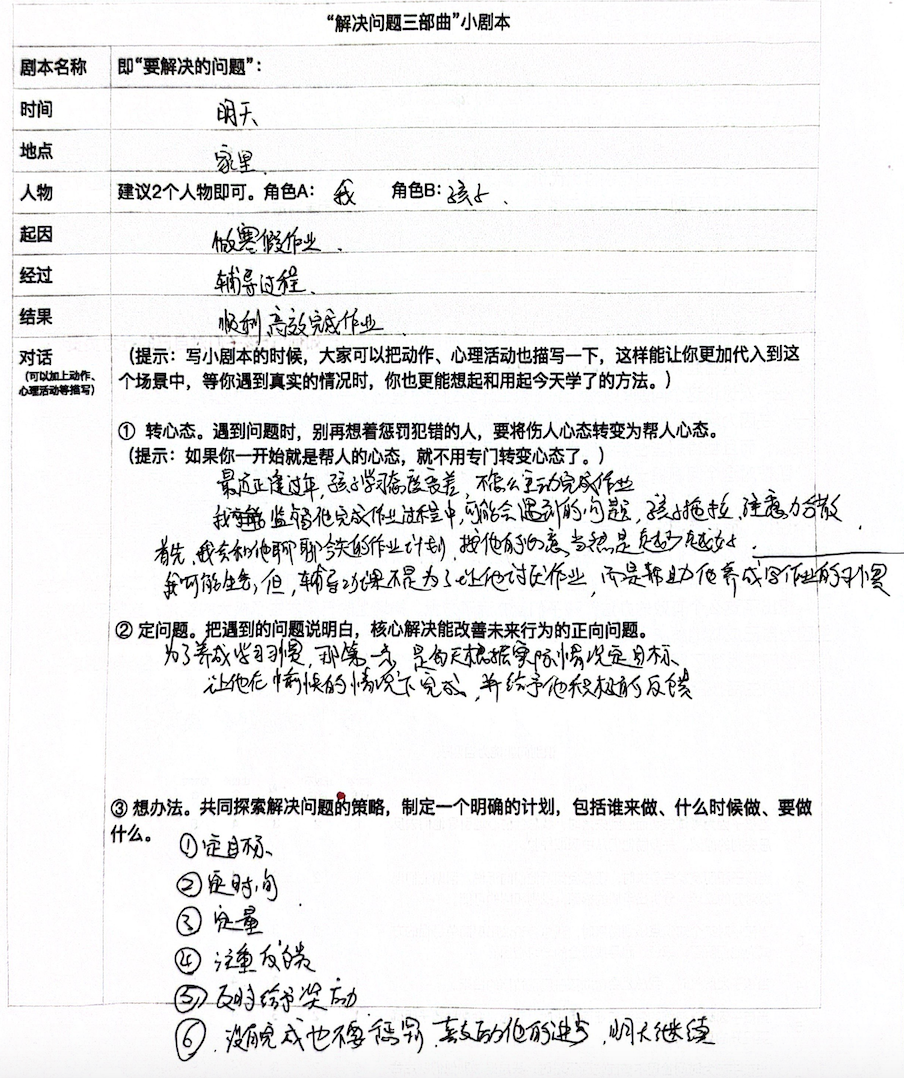 “解决问题三部曲”小剧本
剧本名称 即“要解决的问题”：
时间 明天
地点 家里
人物 建议2个人物即可。角色A： 我 角色B：孩子、
起因 做寒假作业、
经过 辅导过程、
结果 顺利高效完成作业、
对话 （提示：写小剧本的时候，大家可以把动作、心理活动也描写一下，这样能让你更加代入到这
（可以加上动作、 个场景中，等你遇到真实的情况时，你也更能想起和用起今天学了的方法。）
心理活动等描写）
① 转心态。遇到问题时，别再想着惩罚犯错的人，要将伤人心态转变为帮人心态。
（提示：如果你一开始就是帮人的心态，就不用专门转变心态了。）
最近正逢过年，孩子学习态度很差，不怎么主动完成作业
我 监督他完成作业过程中，可能会遇到的问题，孩子拖拉、注意力分散、
首先，我会和他聊聊今天的作业计划，按他的 意 当然是 越好、
我可能生气，但，辅导功课不是为了让他讨厌作业，而是帮助他养成写作业的习惯
② 定问题。把遇到的问题说明白，核心解决能改善未来行为的正向问题。
为了养成学习习惯，那第一步，是每天根据实际情况定目标、
让他在愉快的情况下完成，并给予他积极的反馈
③ 想办法。共同探索解决问题的策略，制定一个明确的计划，包括谁来做、什么时候做、要做
什么。
①定目标、
②定时间
③ 定量
④ 注重反馈
⑤ 及时给予奖励
⑥、没有完成也不要 他的进步，明天继续